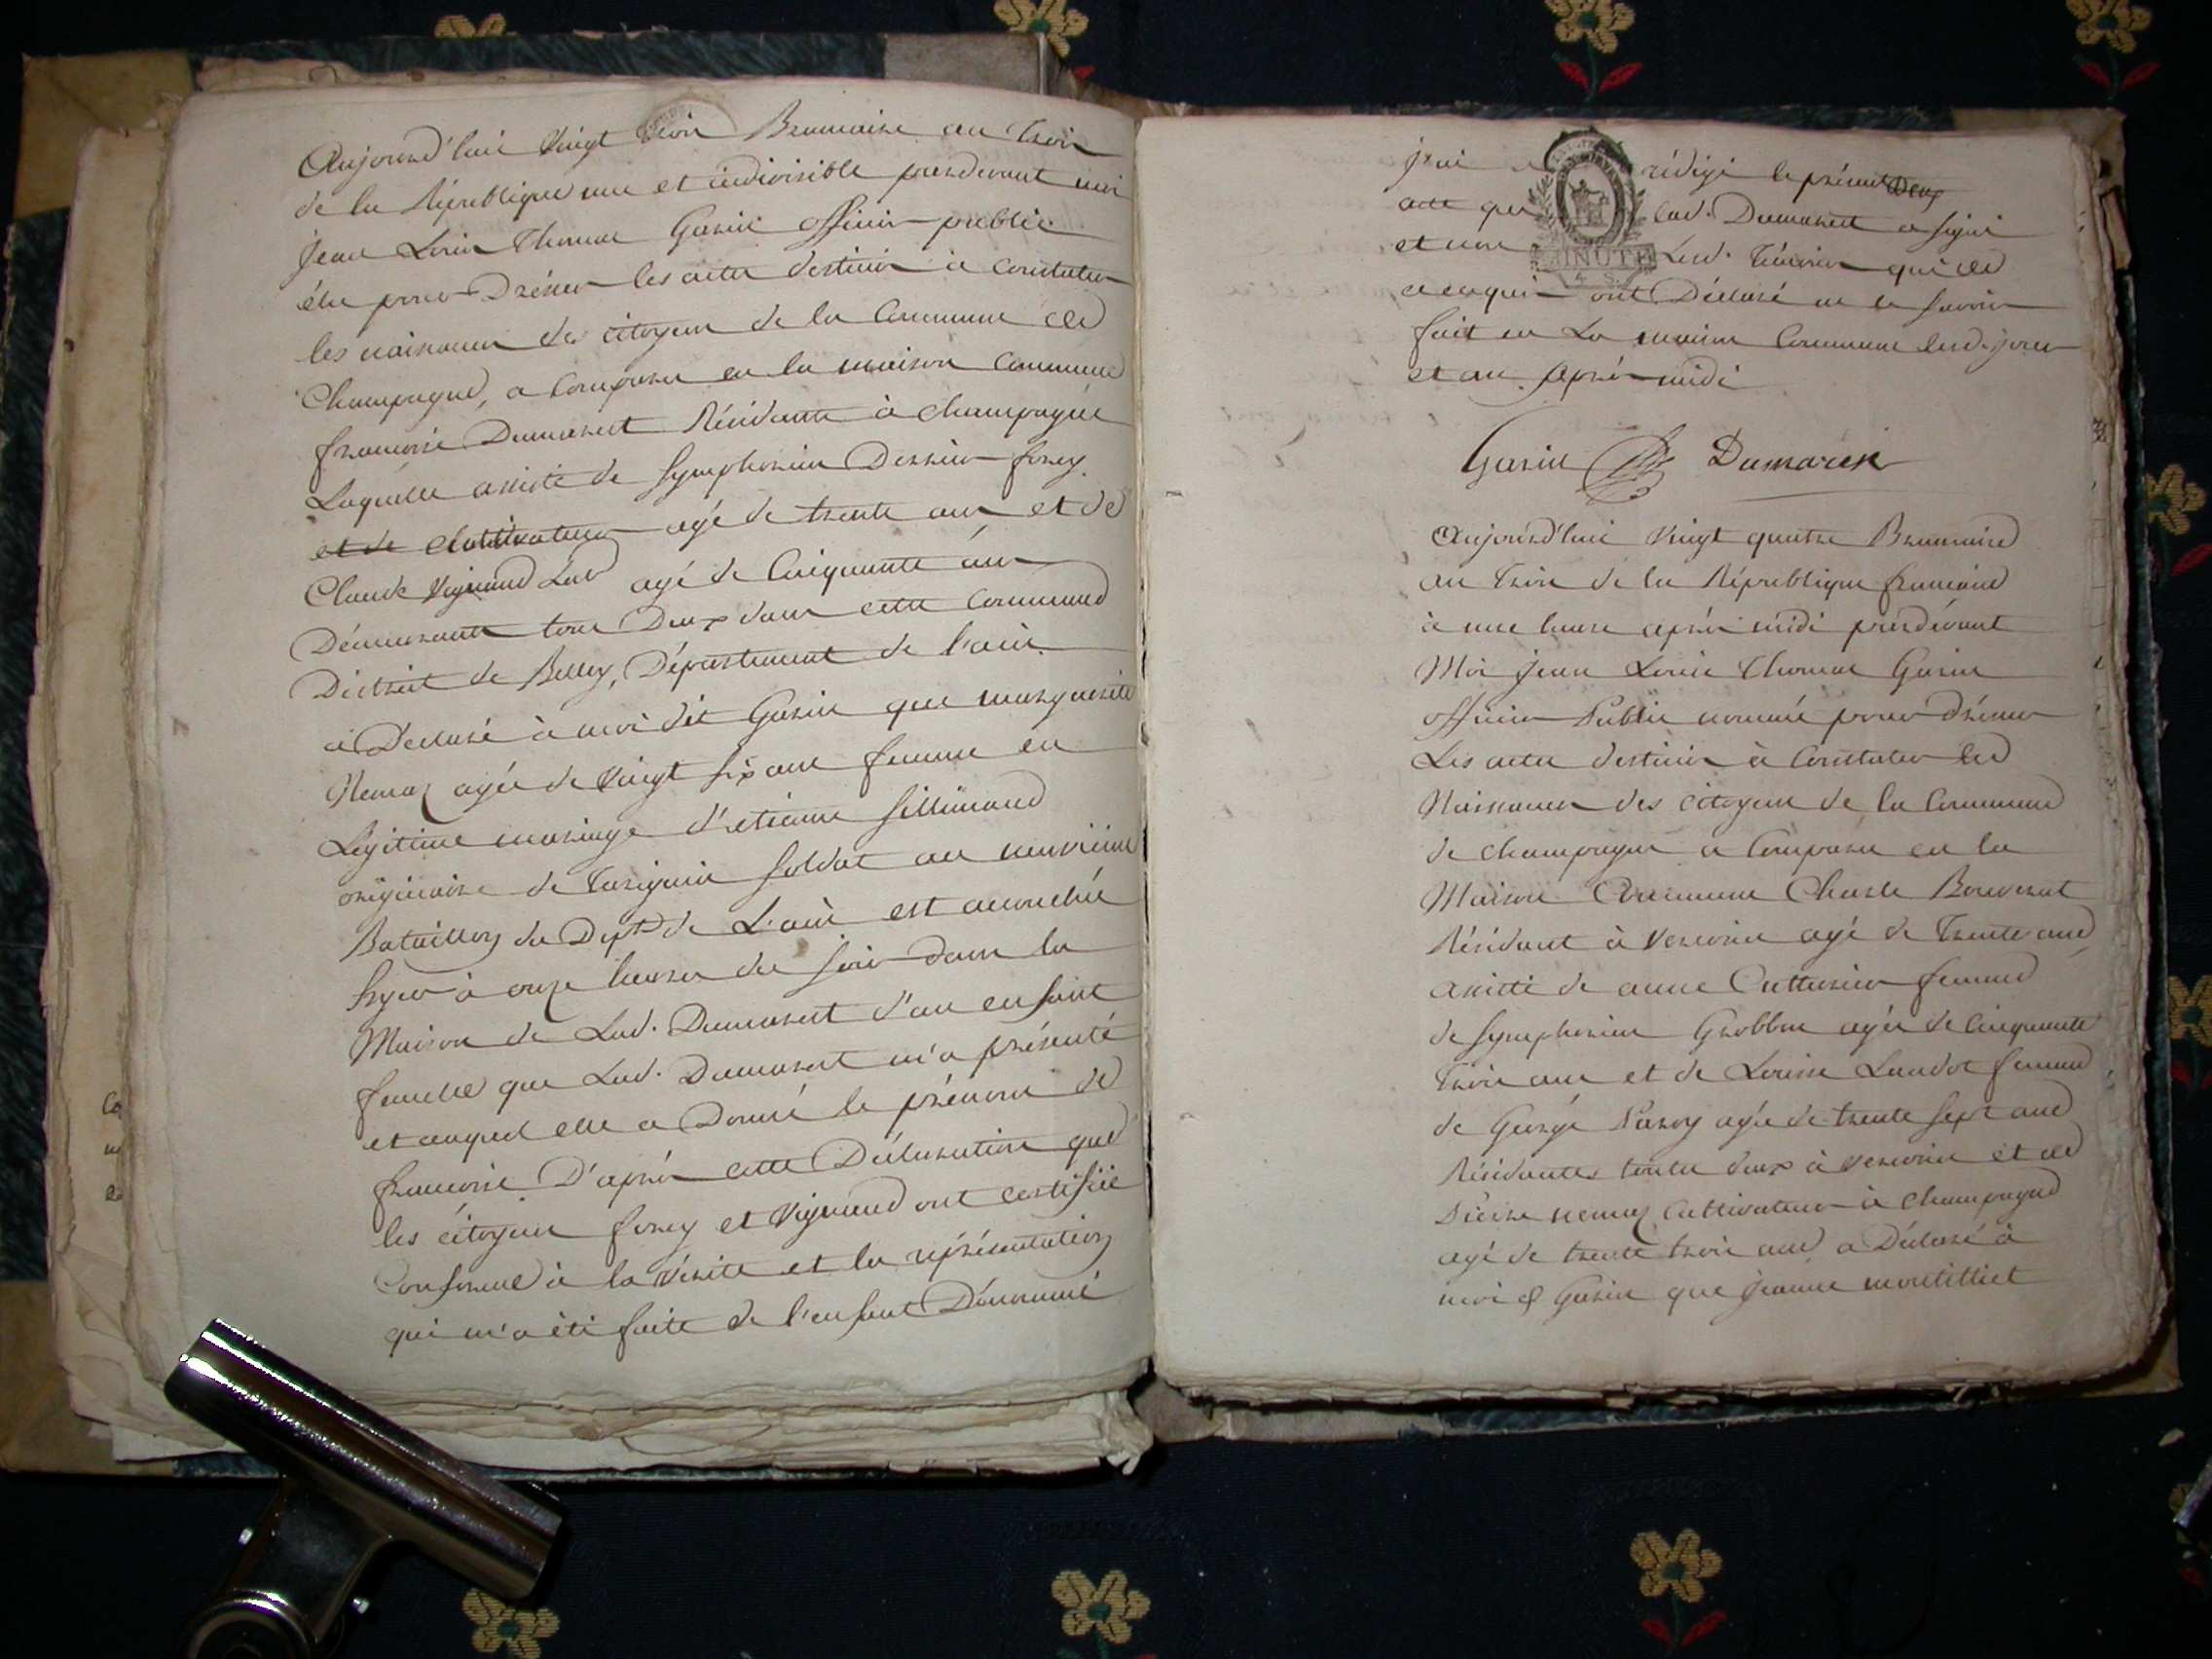 Aujourd'hui Vingt trois Brumaire an trois
de la République une et indivisible pardevant moi
Jean Louis Thomas Garin officier public
élu pour Dresser les actes destinés à constater
les naissances des citoyens de la Commune de
Champagne, a Comparu en la maison Commune
françoise Dumarest Résidante à champagne
Laquelle assisté de symphorien Dessier forey
et de Cultivateur agé de trente ans et de
Claude Vignand Lab agé de Cinquante ans
Démeurants tous Deux dans cette Commune
District de Belley, Département de l'ain.
a Déclaré à moi dit Garin que marguerite
Nemoz agée de Vingt six ans femme en
Légitime mariage d'etienne fillimand
originaire de soldat au neuvieme
Bataillon du Dept de L'ain est accouchée
hyer à onze heures du soir dans la
Maison de Lad. Dumarest d'un enfant
femelle que Lad. Dumarest m'a présenté
et auquel elle a Donné le prénom de
françoise D'après cette Déclaration que
les citoyens forey et Vignand ont certifiée
Conforme à la Vérité et la représentation
qui m'a été faite de l'enfant Dénommé
j'ai rédigé le présent Deux
acte que Lad. Dumarest a signé
et non Lesd. Témoins que de
ce enquis ont Déclaré ne le savoir
fait en La maison Commune lesd. jour
et an après midi
MINUTE
4 S.
Garin Dumarest
Aujourd'hui Vingt quatre Brumaire
an Trois de la République françoise
à une heure après midi pardevant
Moi Jean Louis Thomas Garin
officier Public nommé pour Dresser
Les actes destinés à Constater les
Naissances des citoyens de la Commune
de champagne a Comparu en la
Maison Commune Charle Bouverat
Résidant à agé de Trente ans
assisté de anne Cuttérier femme
de symphorien Grobbon agée de Cinquante
Trois ans et de Louise Landot femme
de George Parroy agée de trente sept ans
Résidantes toutes deux à et de
Pierre nemoz Cultivateur à Champagne
agé de trente trois ans a Déclaré à
moi d Garin que Jeanne montilliet